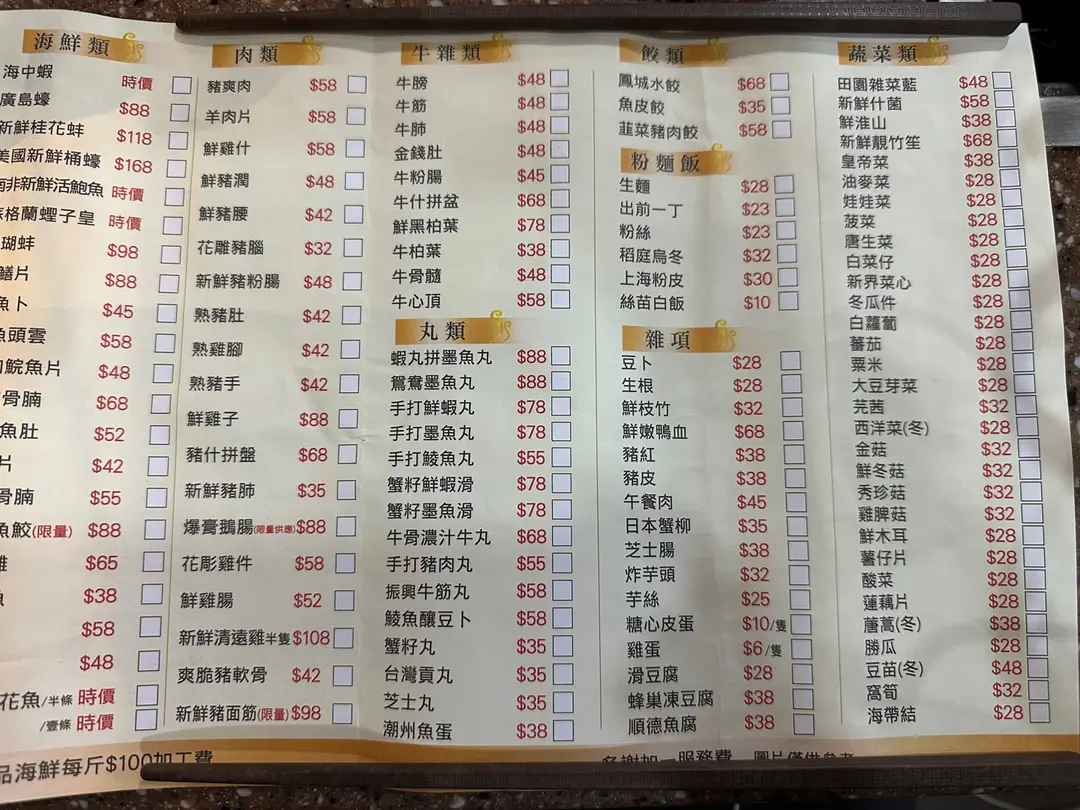 海鮮類
海中蝦 時價
廣島蠔 $88
新鮮桂花蚌 $118
美國新鮮桶蠔 $168
非新鮮活鮑魚 時價
格蘭蟶子皇 時價
瑚蚌 $98
鱔片 $88
魚卜 $45
魚頭雲 $58
鯇魚片 $48
骨腩 $68
魚肚 $52
片 $42
骨腩 $55
魚鮫(限量) $88
$65
$38
$58
$48
花魚/半條 時價
/壹條 時價
肉類
豬爽肉 $58
羊肉片 $58
鮮雞什 $58
鮮豬潤 $48
鮮豬腰 $42
花雕豬腦 $32
新鮮豬粉腸 $48
熟豬肚 $42
熟雞腳 $42
熟豬手 $42
鮮雞子 $88
豬什拼盤 $68
新鮮豬肺 $35
爆膏鵝腸(限量供應) $88
花彫雞件 $58
鮮雞腸 $52
新鮮清遠雞半隻 $108
爽脆豬軟骨 $42
新鮮豬面筋(限量) $98
牛雜類
牛膀 $48
牛筋 $48
牛肺 $48
金錢肚 $48
牛粉腸 $45
牛什拼盆 $68
鮮黑柏葉 $78
牛柏葉 $38
牛骨髓 $48
牛心頂 $58
丸類
蝦丸拼墨魚丸 $88
鴛鴦墨魚丸 $88
手打鮮蝦丸 $78
手打墨魚丸 $78
手打鯪魚丸 $55
蟹籽鮮蝦滑 $78
蟹籽墨魚滑 $78
牛骨濃汁牛丸 $68
手打豬肉丸 $55
振興牛筋丸 $58
鯪魚釀豆卜 $58
蟹籽丸 $35
台灣貢丸 $35
芝士丸 $35
潮州魚蛋 $38
餃類
鳳城水餃 $68
魚皮餃 $35
韮菜豬肉餃 $58
粉麵飯
生麵 $28
出前一丁 $23
粉絲 $23
稻庭烏冬 $32
上海粉皮 $30
絲苗白飯 $10
雜項
豆卜 $28
生根 $28
鮮枝竹 $32
鮮嫩鴨血 $68
豬紅 $38
豬皮 $38
午餐肉 $45
日本蟹柳 $35
芝士腸 $38
炸芋頭 $32
芋絲 $25
糖心皮蛋 $10/隻
雞蛋 $6/隻
滑豆腐 $28
蜂巢凍豆腐 $38
順德魚腐 $38
蔬菜類
田園雜菜藍 $48
新鮮什菌 $58
鮮淮山 $38
新鮮靚竹笙 $68
皇帝菜 $38
油麥菜 $28
娃娃菜 $28
菠菜 $28
唐生菜 $28
白菜仔 $28
新界菜心 $28
冬瓜件 $28
白蘿蔔 $28
蕃茄 $28
粟米 $28
大豆芽菜 $28
芫茜 $32
西洋菜(冬) $28
金菇 $32
鮮冬菇 $32
秀珍菇 $32
雞脾菇 $32
鮮木耳 $28
薯仔片 $28
酸菜 $28
蓮藕片 $28
蘑蒿(冬) $38
勝瓜 $28
豆苗(冬) $48
窩筍 $32
海帶結 $28
品海鮮每斤$100加工費
多謝加一服務費 圖片僅供參考